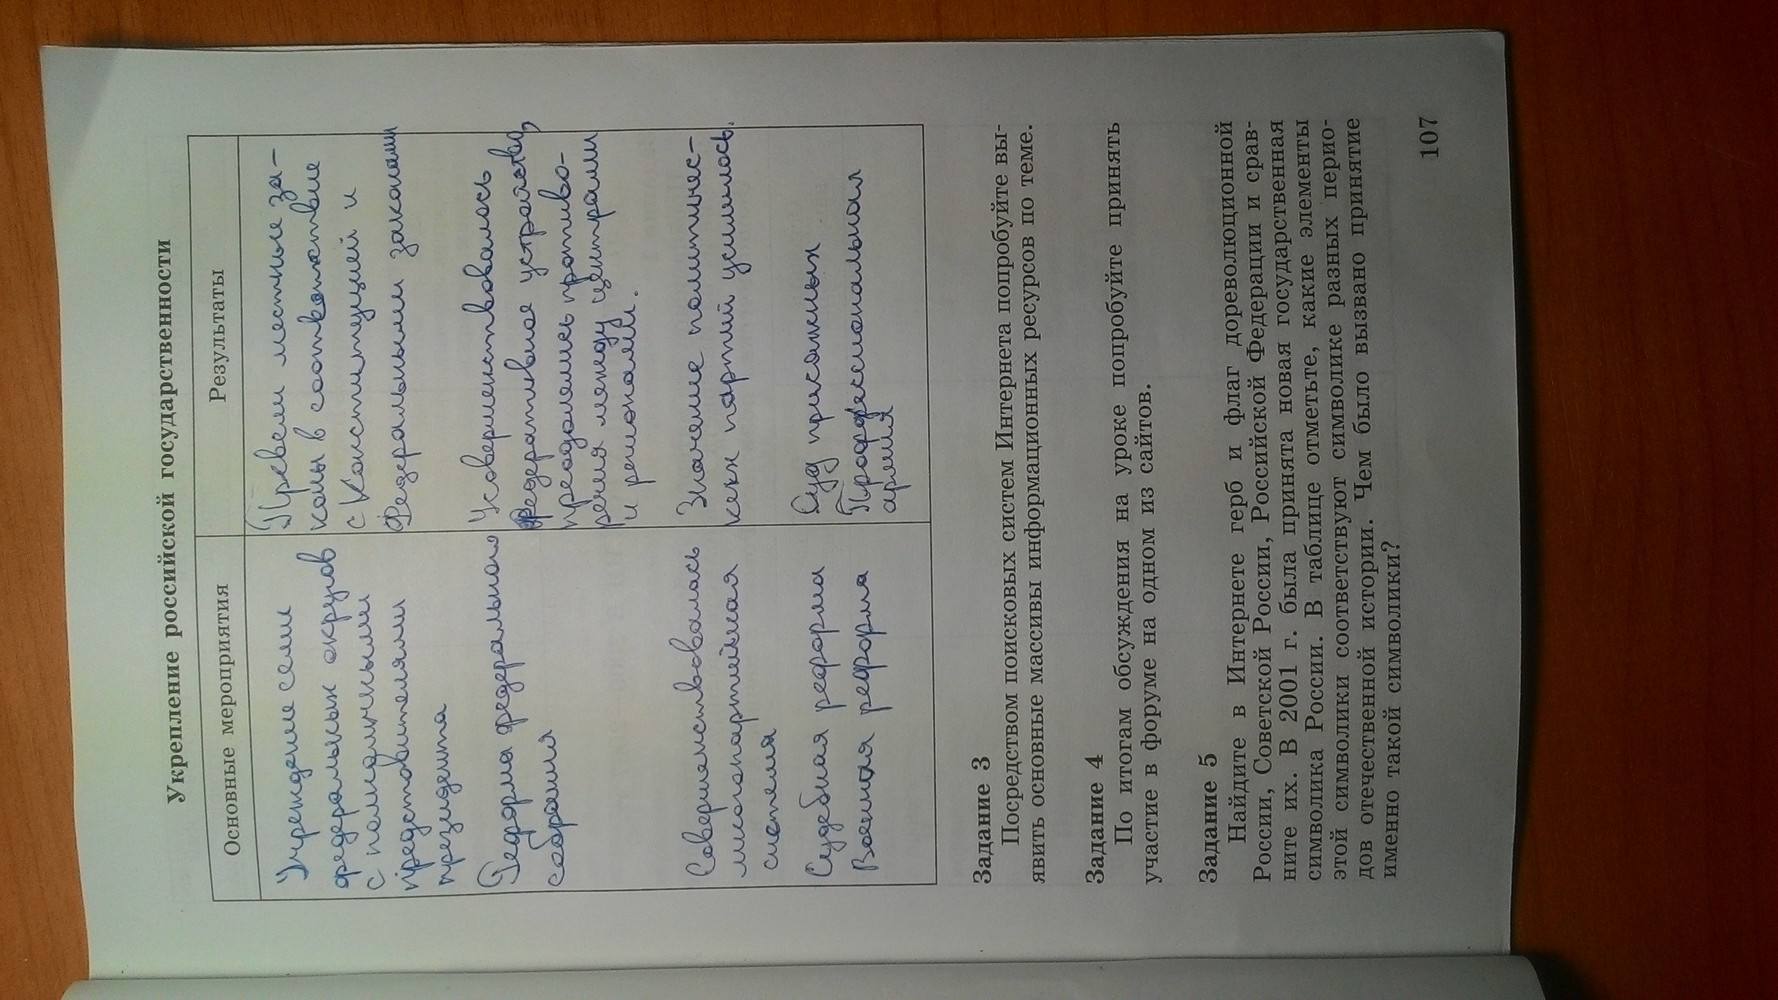 Укрепление российской государственности
Основные мероприятия
Результаты
Учреждение семи
федеральных округов
с полномочными
представителями
президента
Привели местные за-
коны в соответствие
с Конституцией и
Федеральными законами
Реформа федерального
собрания
Усовершенствовалось
федеративное устройство,
преодолелись противо-
речия между центрами
и регионами.
Совершенствовалась
многопартийная
система
Значение политичес-
ких партий усилилось.
Судебная реформа
Военная реформа
Суд присяжных
Профессиональная
армия
Задание 3
Посредством поисковых систем Интернета попробуйте вы-
явить основные массивы информационных ресурсов по теме.
Задание 4
По итогам обсуждения на уроке попробуйте принять
участие в форуме на одном из сайтов.
Задание 5
Найдите в Интернете герб и флаг дореволюционной
России, Советской России, Российской Федерации и срав-
ните их. В 2001 г. была принята новая государственная
символика России. В таблице отметьте, какие элементы
этой символики соответствуют символике разных перио-
дов отечественной истории. Чем было вызвано принятие
именно такой символики?
107